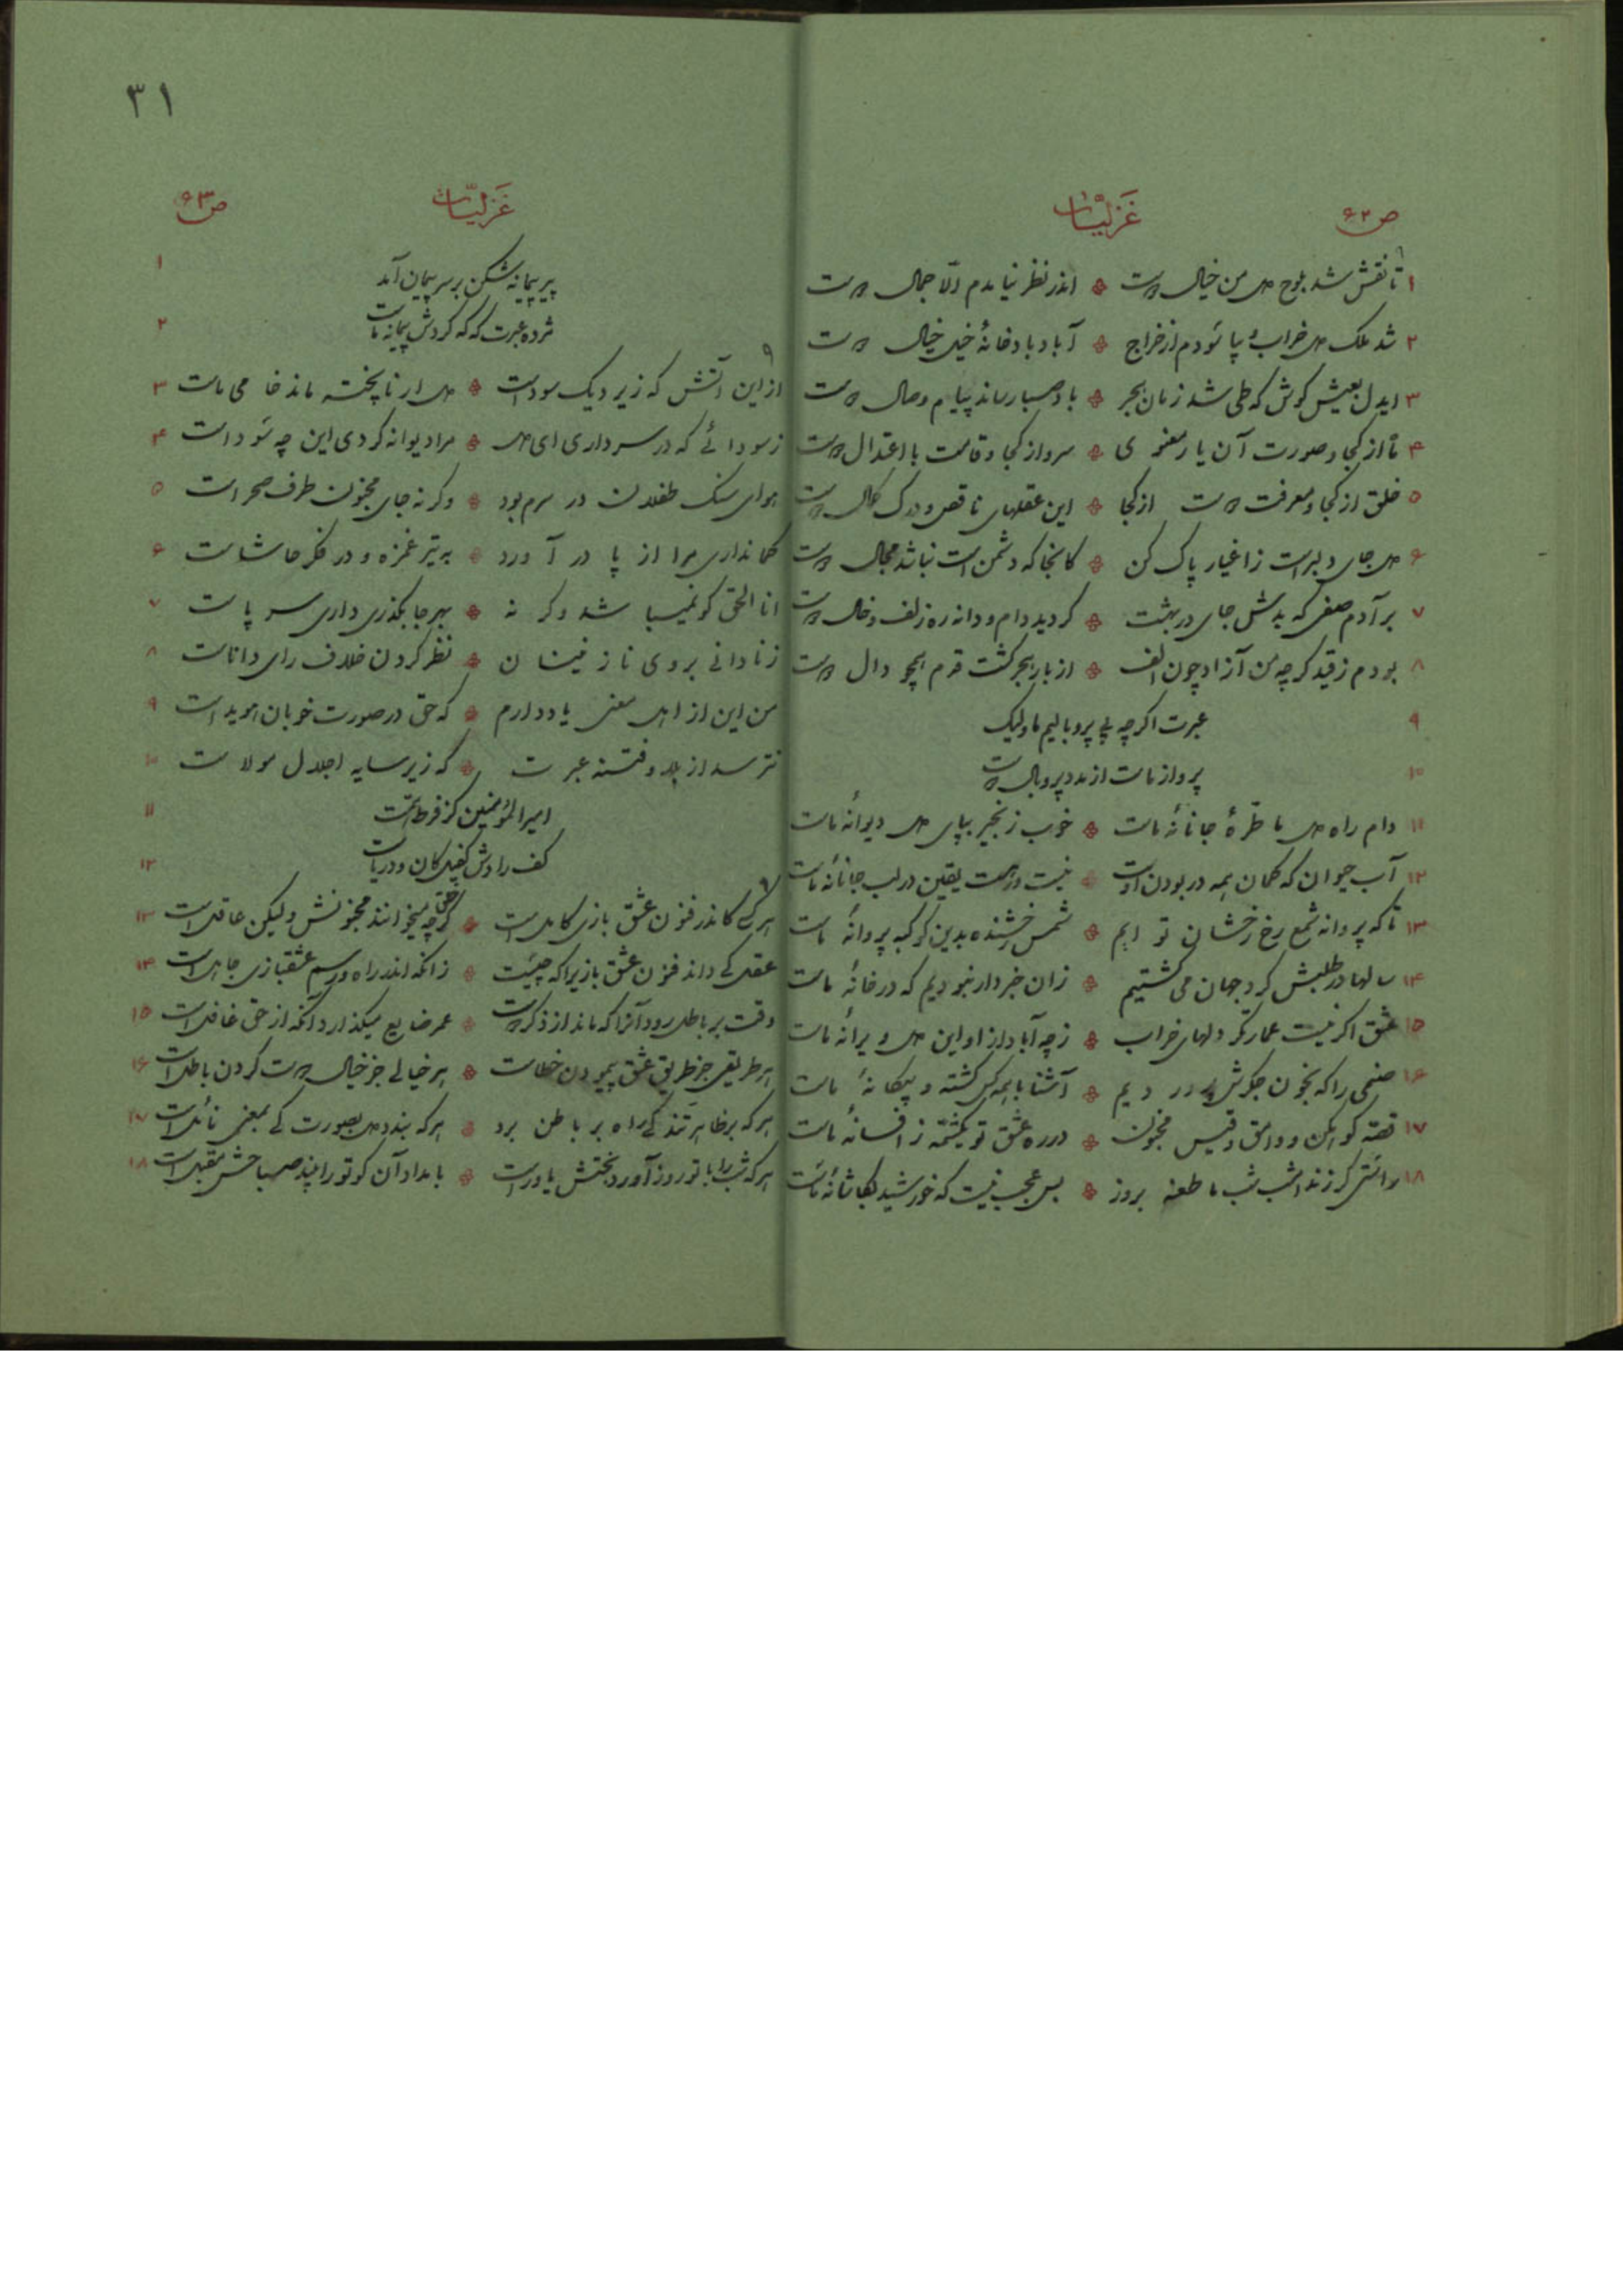 ص ۶۲
غزلیّات
۱ تا نقش شد بلوح دل من خیال دوست ❖ اندر نظر نیایدم الّا جمال دوست
۲ شد ملک دل خراب و بپا سودم از خراج ❖ آباد باد خانهٔ خیل خیال دوست
۳ ایدل بعیش کوش که طی شد زمان هجر ❖ باد صبا رساند پیام وصال دوست
۴ تا از کجا و صورت آن یار معنوی ❖ سرو از کجا و قامت با اعتدال دوست
۵ خلق از کجا و معرفت دوست از کجا ❖ این عقلهای ناقص و درک کمال دوست
۶ دل جای دلبر است ز اغیار پاک کن ❖ کانجا که دشمن است نباشد مجال دوست
۷ بر آدم صفی که بدش جای در بهشت ❖ کردید دام و دانه ره زلف و خال دوست
۸ بودم ز قید کرچه من آزاد چون الف ❖ از بار هجر کشت قدم همچو دال دوست
۹ عبرت اکرچه بی پر و بالیم ما ولیک
۱۰ پرواز ماست از مدد پر و بال دوست
۱۱ دام راه دل ما طرّهٔ جانانهٔ ماست ❖ خوب زنجیر بپای دل دیوانهٔ ماست
۱۲ آب حیوان که کمان همه در بودن اوست ❖ نیست در هست یقین در لب جانانهٔ ماست
۱۳ تا که پروانه شمع رخ رخشان تو ایم ❖ شمس رخشنده بدین کوکبه پروانهٔ ماست
۱۴ سالها در طلبش کرد جهان می کشتیم ❖ زان خبردار نبودیم که در خانهٔ ماست
۱۵ عشق اکر نیست عمارتکر دلهای خراب ❖ ز چه آباد از او این دل ویرانهٔ ماست
۱۶ صنمی را که بخون جکرش پروردیم ❖ آشنا با همه کس کشته و بیکانهٔ ماست
۱۷ قصه کوهکن و وامق و قیس مجنون ❖ در ره عشق تو یکشمّه ز افسانهٔ ماست
۱۸ راستی کر زند امشب شب ما طعنه بروز ❖ بس عجب نیست که خورشید بکاشانهٔ ماست
۳۱
غزلیّات
ص ۶۳
۱ پیر پیمانه شکن بر سر پیمان آمد
۲ مژده عبرت که که کردش پیمانه ماست
۳ از این آتش که زیر دیک سوداست ❖ دل ار ناپخته ماند خامی ماست
۴ ز سودائی که در سر داری ای دل ❖ مرا دیوانه کردی این چه سوداست
۵ هوای سنک طفلان در سرم بود ❖ وکرنه جای مجنون طرف صحراست
۶ کمانداری مرا از پا در آورد ❖ به تیر غمزه و در فکر حاشاست
۷ انا الحق کو نمیباشد وکرنه ❖ بهر جا بکذری داری سر پاست
۸ ز نادانی بروی نازنینان ❖ نظر کردن خلاف رای داناست
۹ من این از اهل معنی یاد دارم ❖ که حق در صورت خوبان هویداست
۱۰ نترسد از بلا و فتنه عبرت ❖ که زیر سایه اجلال مولاست
۱۱ امیرالمؤمنین کز فرط همّت
۱۲ کف رادش کفیل کان و دریاست
۱۳ هر کی کاندر فنون عشق بازی کامل است ❖ کرچه خلق میخوانند مجنونش ولیکن عاقل است
۱۴ عقل کی داند فنون عشق بازیرا که چیست ❖ زانکه اندر راه و رسم عشقبازی جاهل است
۱۵ وقت بر باطل رود آنرا که ماند از ذکر دوست ❖ عمر ضایع میکذارد آنکه از حق غافل است
۱۶ هر طریقی جز طریق عشق پیمودن خطاست ❖ هر خیالی جز خیال دوست کردن باطل است
۱۷ هر که بر ظاهر تند کی راه بر باطن برد ❖ هر که بندد دل بصورت کی بمعنی نائل است
۱۸ هر که شب را با تو روز آورد بختش یاور است ❖ بامداد آن کو تو را بیند صباحش مقبل است